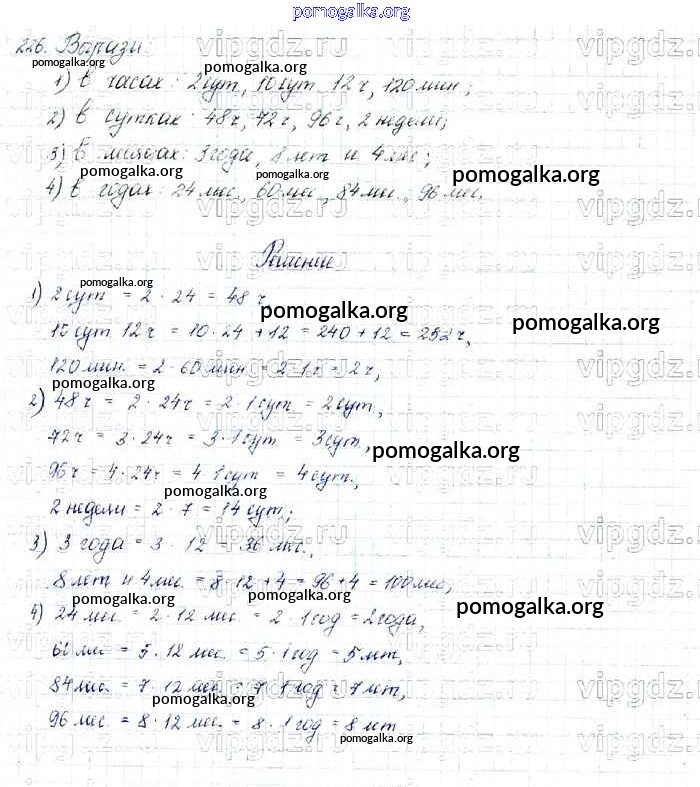 pomogalka.org
226. Вырази:
1) в часах: 2 сут, 10 сут 12 ч, 120 мин;
2) в сутках: 48 ч, 72 ч, 96 ч, 2 недели;
3) в месяцах: 3 года, 8 лет и 4 мес;
4) в годах: 24 мес., 60 мес., 84 мес., 96 мес.
Решение
1) 2 сут = 2 · 24 = 48 ч,
10 сут 12 ч = 10 · 24 + 12 = 240 + 12 = 252 ч,
120 мин. = 2 · 60 мин = 2 · 1 ч = 2 ч,
2) 48 ч = 2 · 24 ч = 2 · 1 сут = 2 сут,
72 ч = 3 · 24 ч = 3 · 1 сут = 3 сут,
96 ч = 4 · 24 ч = 4 · 1 сут = 4 сут.,
2 недели = 2 · 7 = 14 сут;
3) 3 года = 3 · 12 = 36 мес.,
8 лет и 4 мес = 8 · 12 + 4 = 96 + 4 = 100 мес,
4) 24 мес = 2 · 12 мес = 2 · 1 год = 2 года,
60 мес = 5 · 12 мес = 5 · 1 год = 5 лет,
84 мес. = 7 · 12 мес = 7 · 1 год = 7 лет,
96 мес = 8 · 12 мес = 8 · 1 год = 8 лет